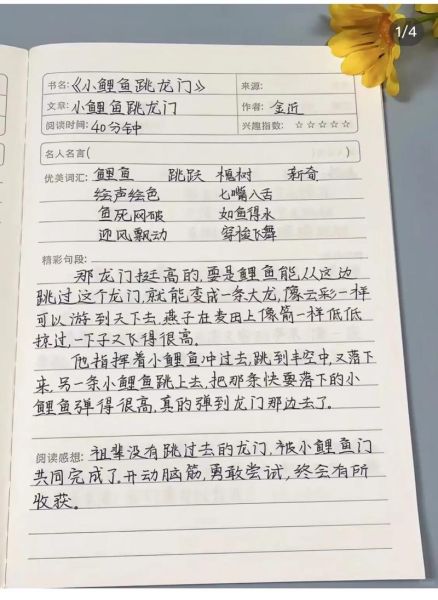 1/4
书名:《小鲤鱼跳龙门》 来源:
文章:小鲤鱼跳龙门 作者:金近
阅读时间:40分钟 兴趣指数:☆☆☆☆☆
名人名言( )
优美词汇:鲤鱼 跳跃 槐树 新奇
绘声绘色 七嘴八舌
鱼死网破 如鱼得水
迎风飘动 穿梭飞舞
精彩句段:
那龙门挺高的,要是鲤鱼能从这边
跳过这个龙门,就能变成一条大龙,像云彩一样
可以游到天下去,燕子在麦田上像箭一样低低
掠过,一下子又飞得很高。
他指挥着小鲤鱼冲过去,跳到半空中,又落下
来,另一条小鲤鱼跳上去,把那条快要落下的小
鲤鱼弹得很高,真的弹到龙门那边去了。
阅读感想:祖辈没有跳过去的龙门,被小鲤鱼门
共同完成了.开动脑筋,勇敢尝试,终会有所
收获。